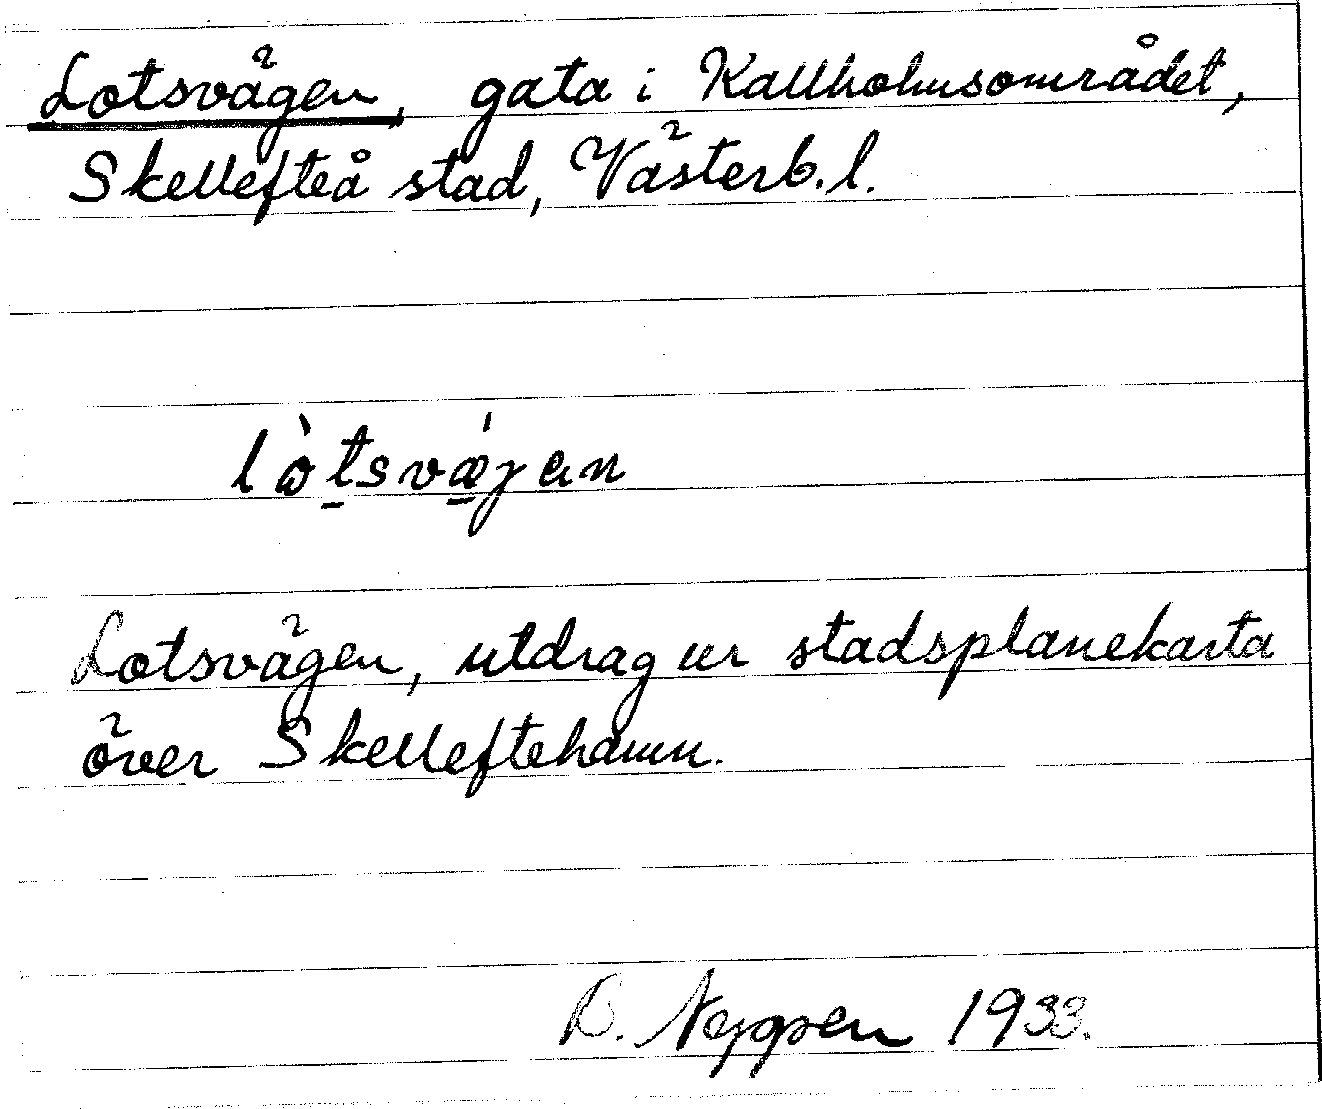 Lotsvägen, gata i Kallholmsområdet,
Skellefteå stad, Västerb. l.
lò̀tsvæ̀́gan
Lotsvägen, utdrag ur stadsplanekarta
över Skelleftehamn.
B. 1933.